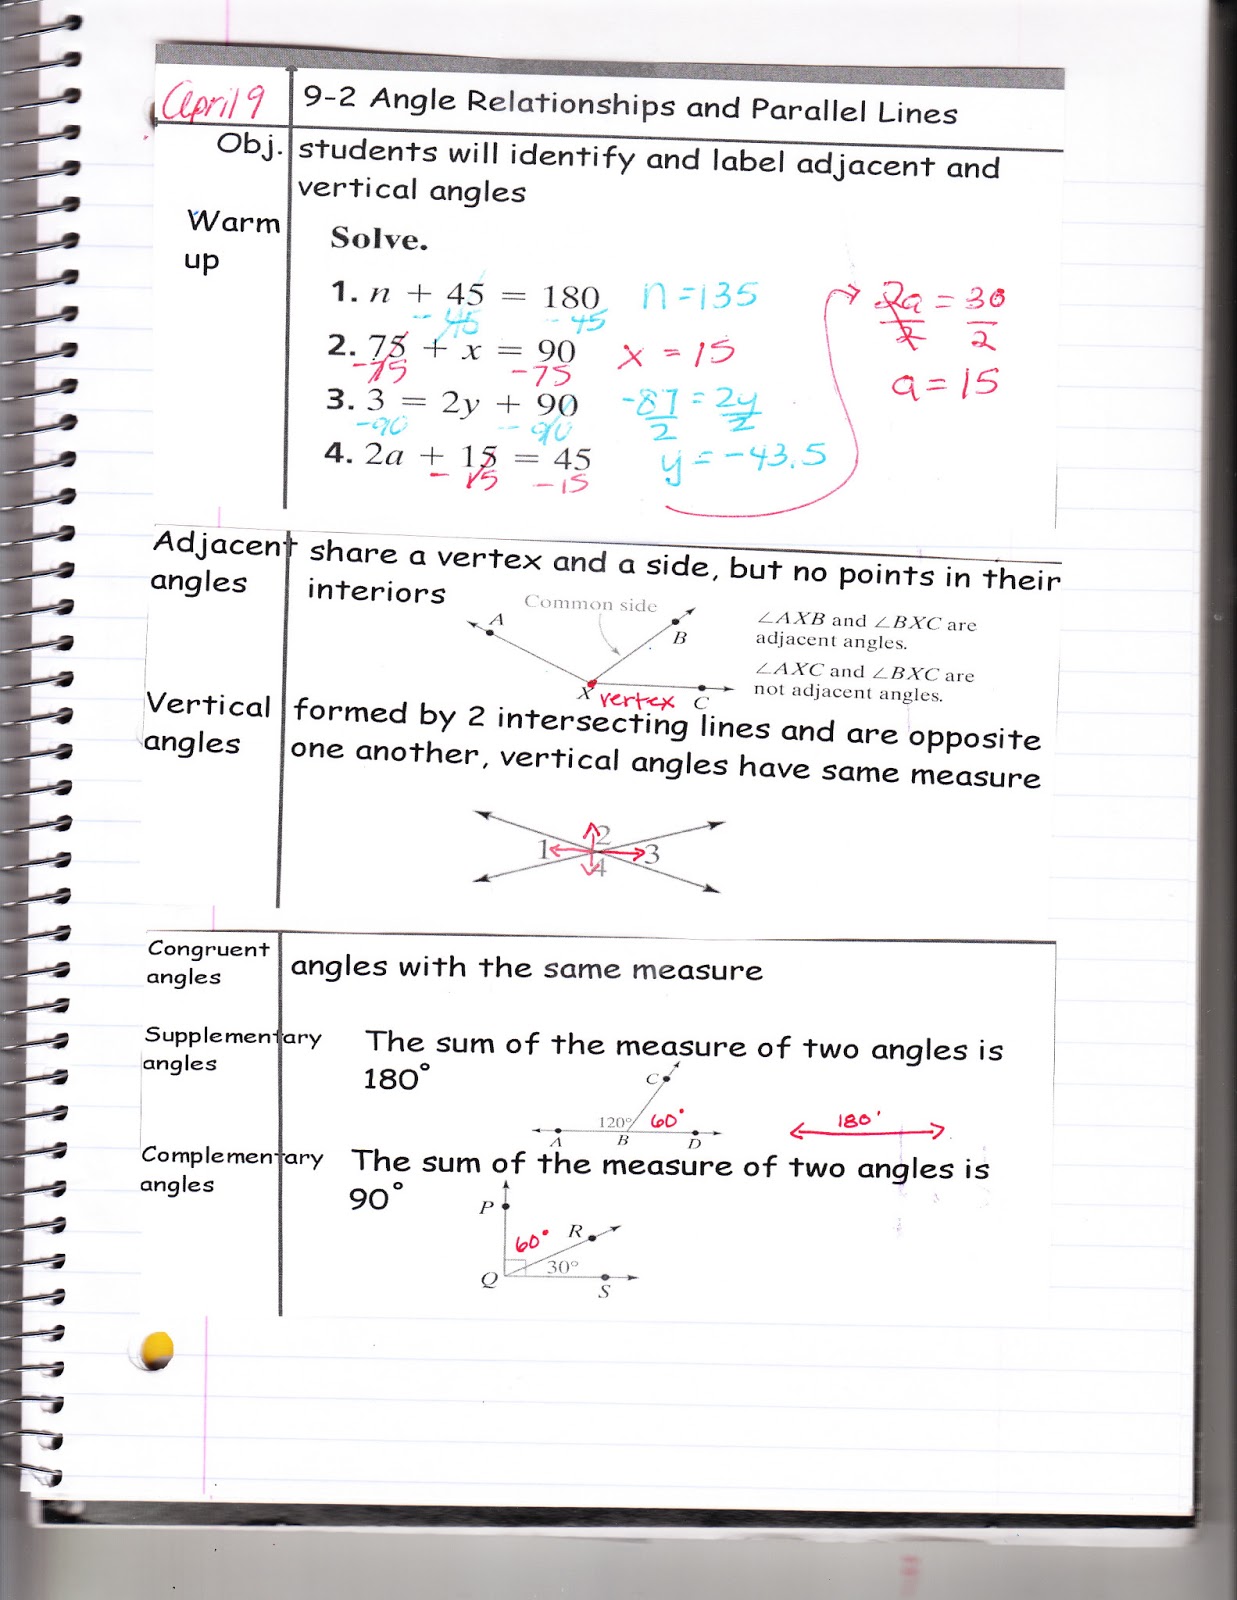 April 9
9-2 Angle Relationships and Parallel Lines
Obj.
students will identify and label adjacent and
vertical angles
Warm
up
Solve.
1. n + 45 = 180 n = 135
- 45 - 45
2. 75 + x = 90 x = 15
-75 -75
3. 3 = 2y + 90 -87 = 2y
-90 - 90 2 2
4. 2a + 15 = 45 y = -43.5
- 15 -15
2a = 30
2 2
a = 15
Adjacent
angles
share a vertex and a side, but no points in their
interiors
Common side
A
B
X vertex C
∠AXB and ∠BXC are
adjacent angles.
∠AXC and ∠BXC are
not adjacent angles.
Vertical
angles
formed by 2 intersecting lines and are opposite
one another, vertical angles have same measure
2
1 3
4
Congruent
angles
angles with the same measure
Supplementary
angles
The sum of the measure of two angles is
180°
C
120° 60°
A B D
180°
Complementary
angles
The sum of the measure of two angles is
90°
P
60° R
30°
Q
S